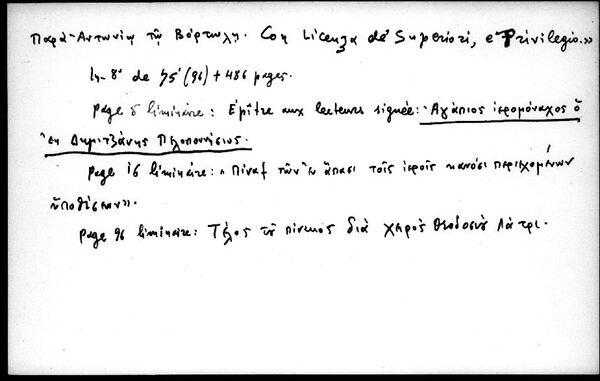 Παρὰ Ἀντωνίῳ τῷ Βόρτωλῃ. Con Licenza de' Superiori, e Privilegio.»
In-8° de 75 (96) + 486 pages.
page 5 liminaire: Epître aux lecteurs signée: Ἀγάπιος ἱερομόναχος ὁ
ἐκ Δημιτζάνης Πελοποννήσιος.
page 16 liminaire: «Πίναξ τῶν ἐν ἅπασι τοῖς ἱεροῖς κανόσι περιεχομένων
ὑποθέσεων».
page 96 liminaire: Τέλος τοῦ πίνακος διὰ χειρὸς Θεοδοσίου Λάτρι.